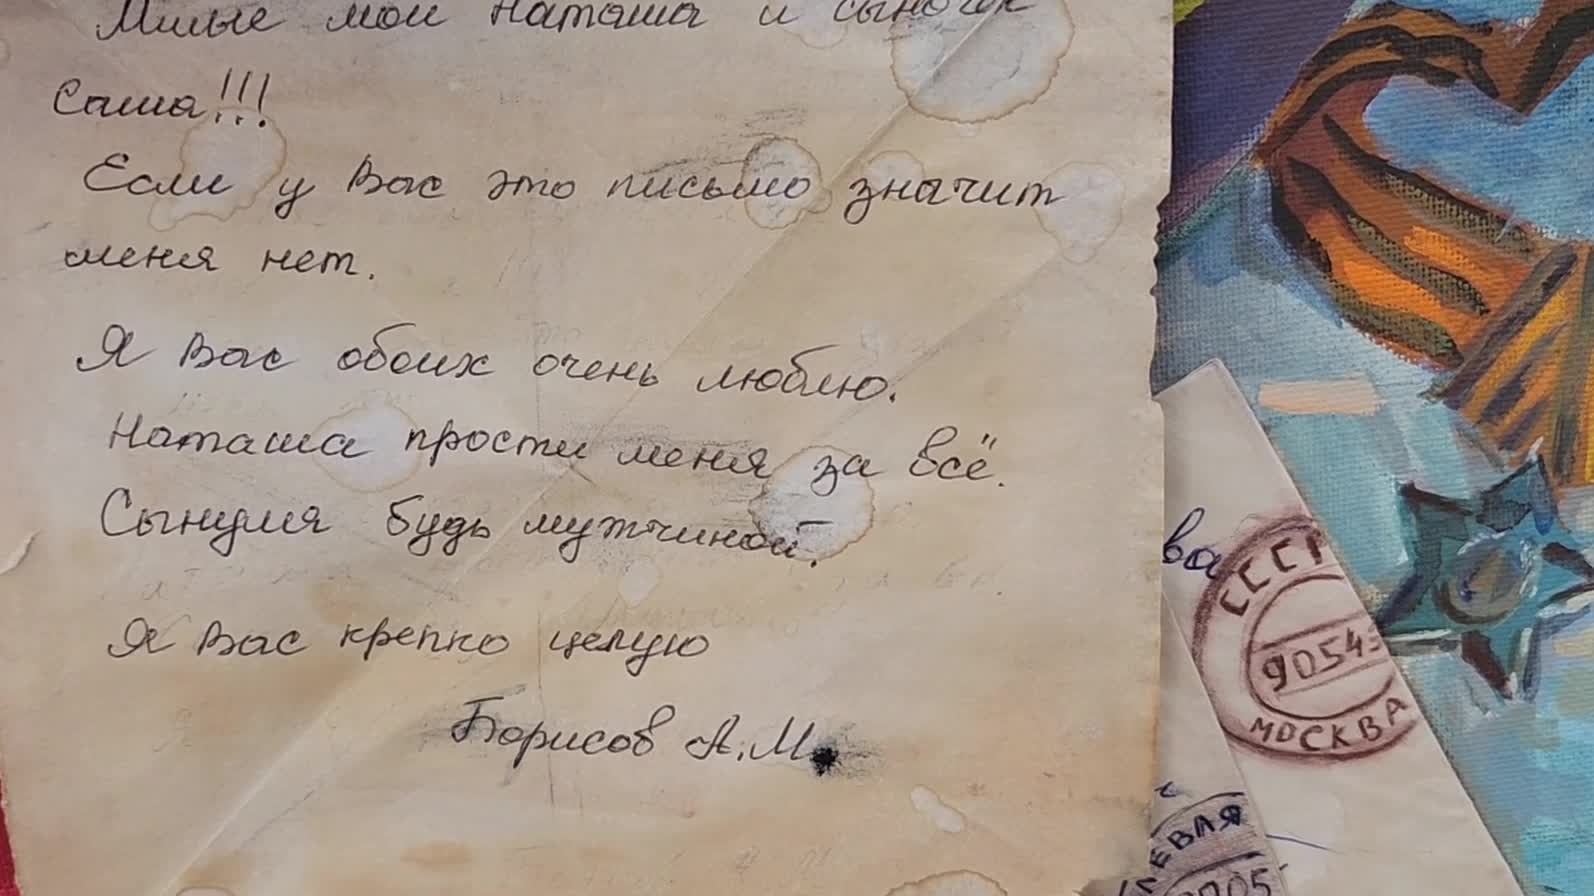 Милые мои Наташа и сыночек
Саша!!!
Если у Вас это письмо значит
меня нет.
Я Вас обоих очень люблю.
Наташа прости меня за всё.
Сынуля будь мужчиной.
Я Вас крепко целую
Борисов А.М.
ва
СССР
90545
МОСКВА
ЛЕВАЯ